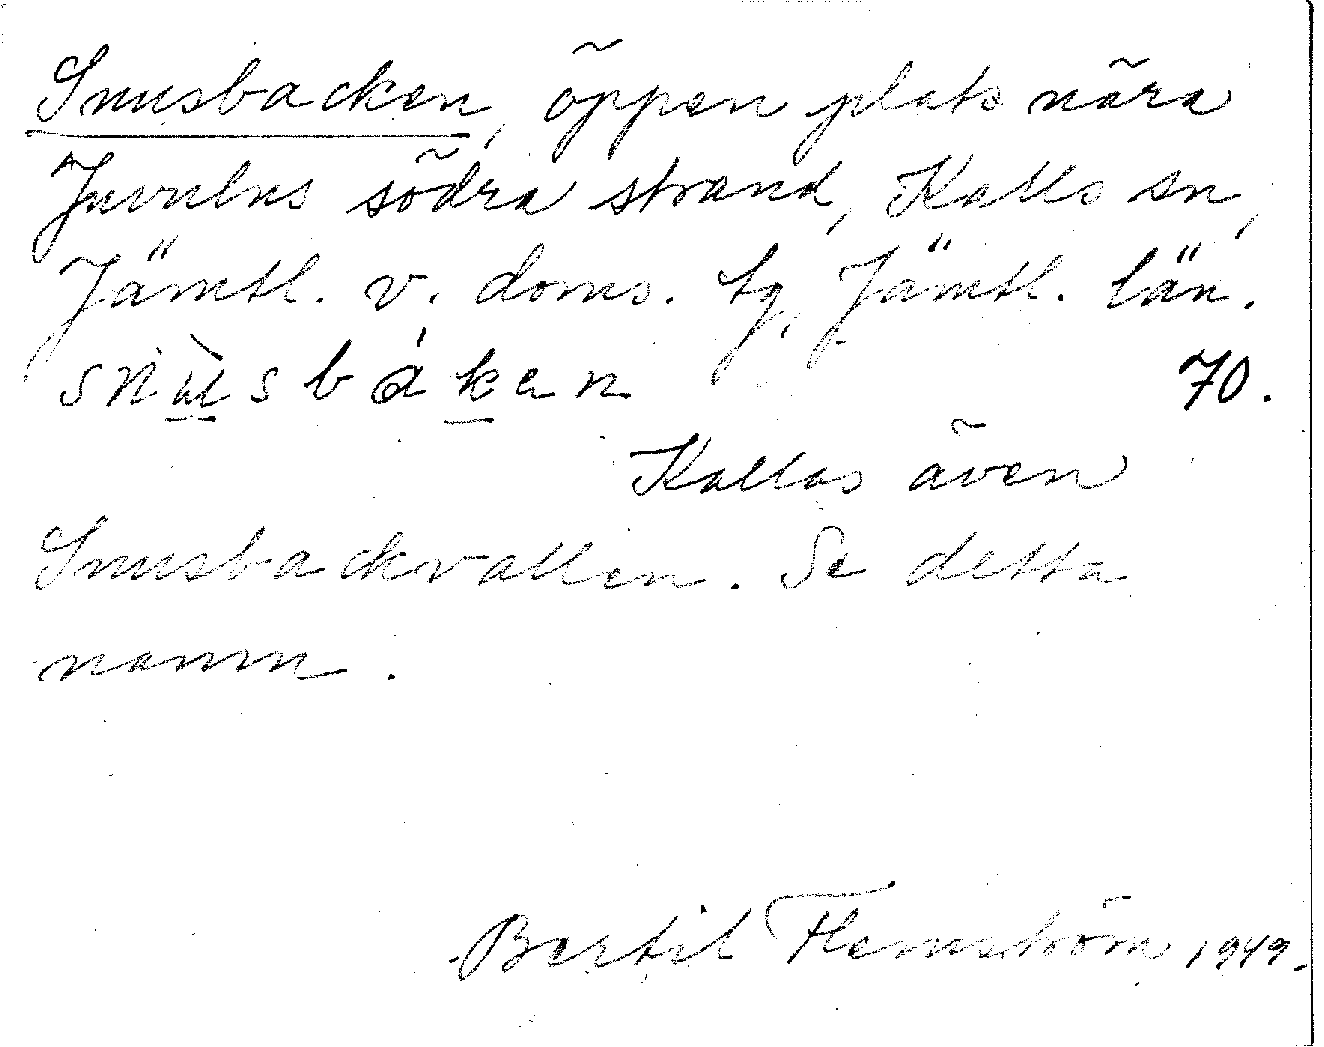 Snusbacken, öppen plats nära
Juvulns södra strand, Kalls sn,
Jämtl. v. doms. tg, Jämtl. län.
snù̲sbák̲en 70.
Kallas även
Snusbackvallen. Se detta
namn.
Bertil Flemström 1949.